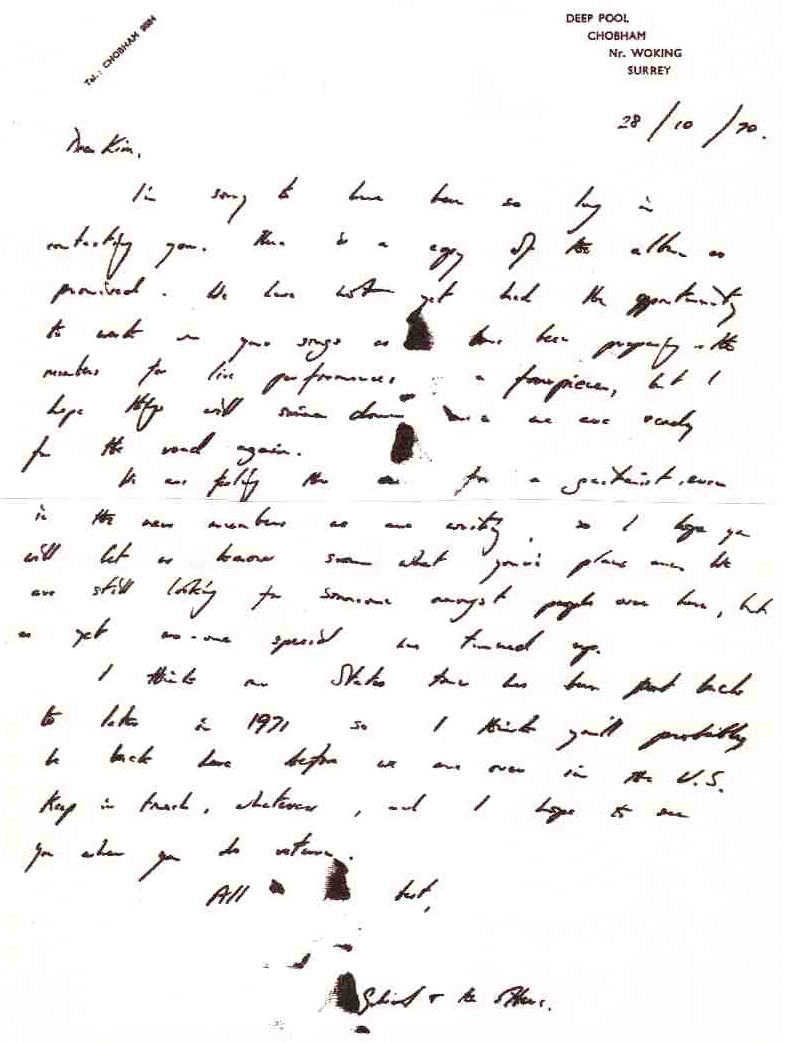 Tel.: CHOBHAM
DEEP POOL
CHOBHAM
Nr. WOKING
SURREY
28/10/70.
Dear Kim,
I'm sorry to have been so long in
contacting you. Here is a copy of the album as
promised. We have not yet had the opportunity
to work on your songs as have been preparing the
numbers for live performances, but I
hope things will simmer down we are ready
for the road again.
We are for a guitarist, even
in the new numbers we are writing, so I hope you
will let us know soon what you're plans are. We
are still looking for someone amongst people over here, but
as yet no-one special has turned up.
I think our States tour has been put back
to later in 1971 so I think you'll probably
be back here before we are over in the U.S.
Keep in touch, whatever, and I hope to see
you when you do return.
All best,
& the others.